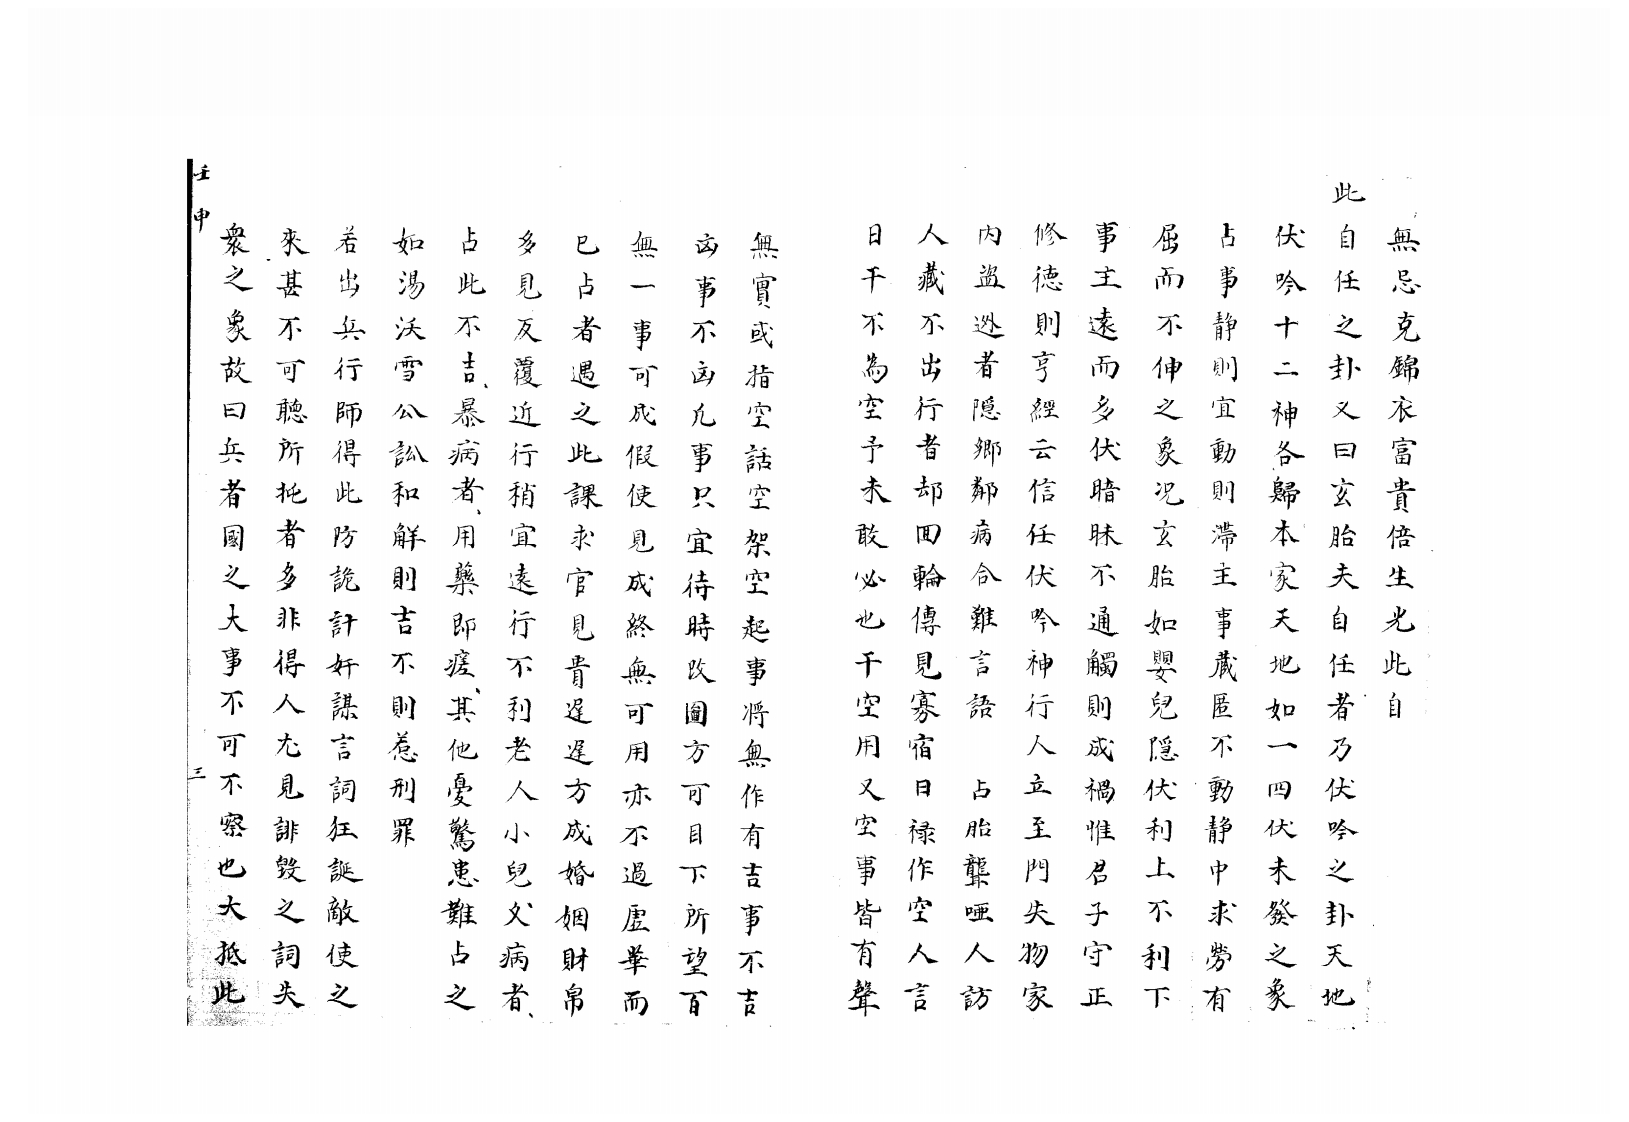 無忌克錦衣富貴倍生光此自
此自任之卦又曰玄胎夫自任者乃伏吟之卦天地
伏吟十二神各歸本家天地如一四伏未發之象
占事静則宜動則滯主事藏匿不動静中求勞有
屈而不伸之象况玄胎如嬰兒隠伏利上不利下
事主遠而多伏暗昧不通觸則成禍惟君子守正
修徳則亨經云信任伏吟神行人立至門失物家
内盗逃者隠鄉鄰病合難言語　占胎聾啞人訪
人藏不出行者却回輪傳見寡宿日禄作空人言
日干不為空予未敢必也干空用又空事皆有聲
無實或指空話空架空起事将無作有吉事不吉
凶事不凶凡事只宜待時改圖方可目下所望百
無一事可成假使見成終無可用亦不過虛華而
已占者遇之此課求官見貴遲遲方成婚姻財帛
多見反覆近行稍宜遠行不利老人小兒父病者、
占此不吉、暴病者、用藥即痊、其他憂驚患難占之
如湯沃雪公訟和解則吉不則惹刑罪
若出兵行師得此防詭詐奸謀言詞狂誕敵使之
來甚不可聽所托者多非得人尤見誹毀之詞失
衆之象故曰兵者國之大事不可不察也大抵此
壬申
三